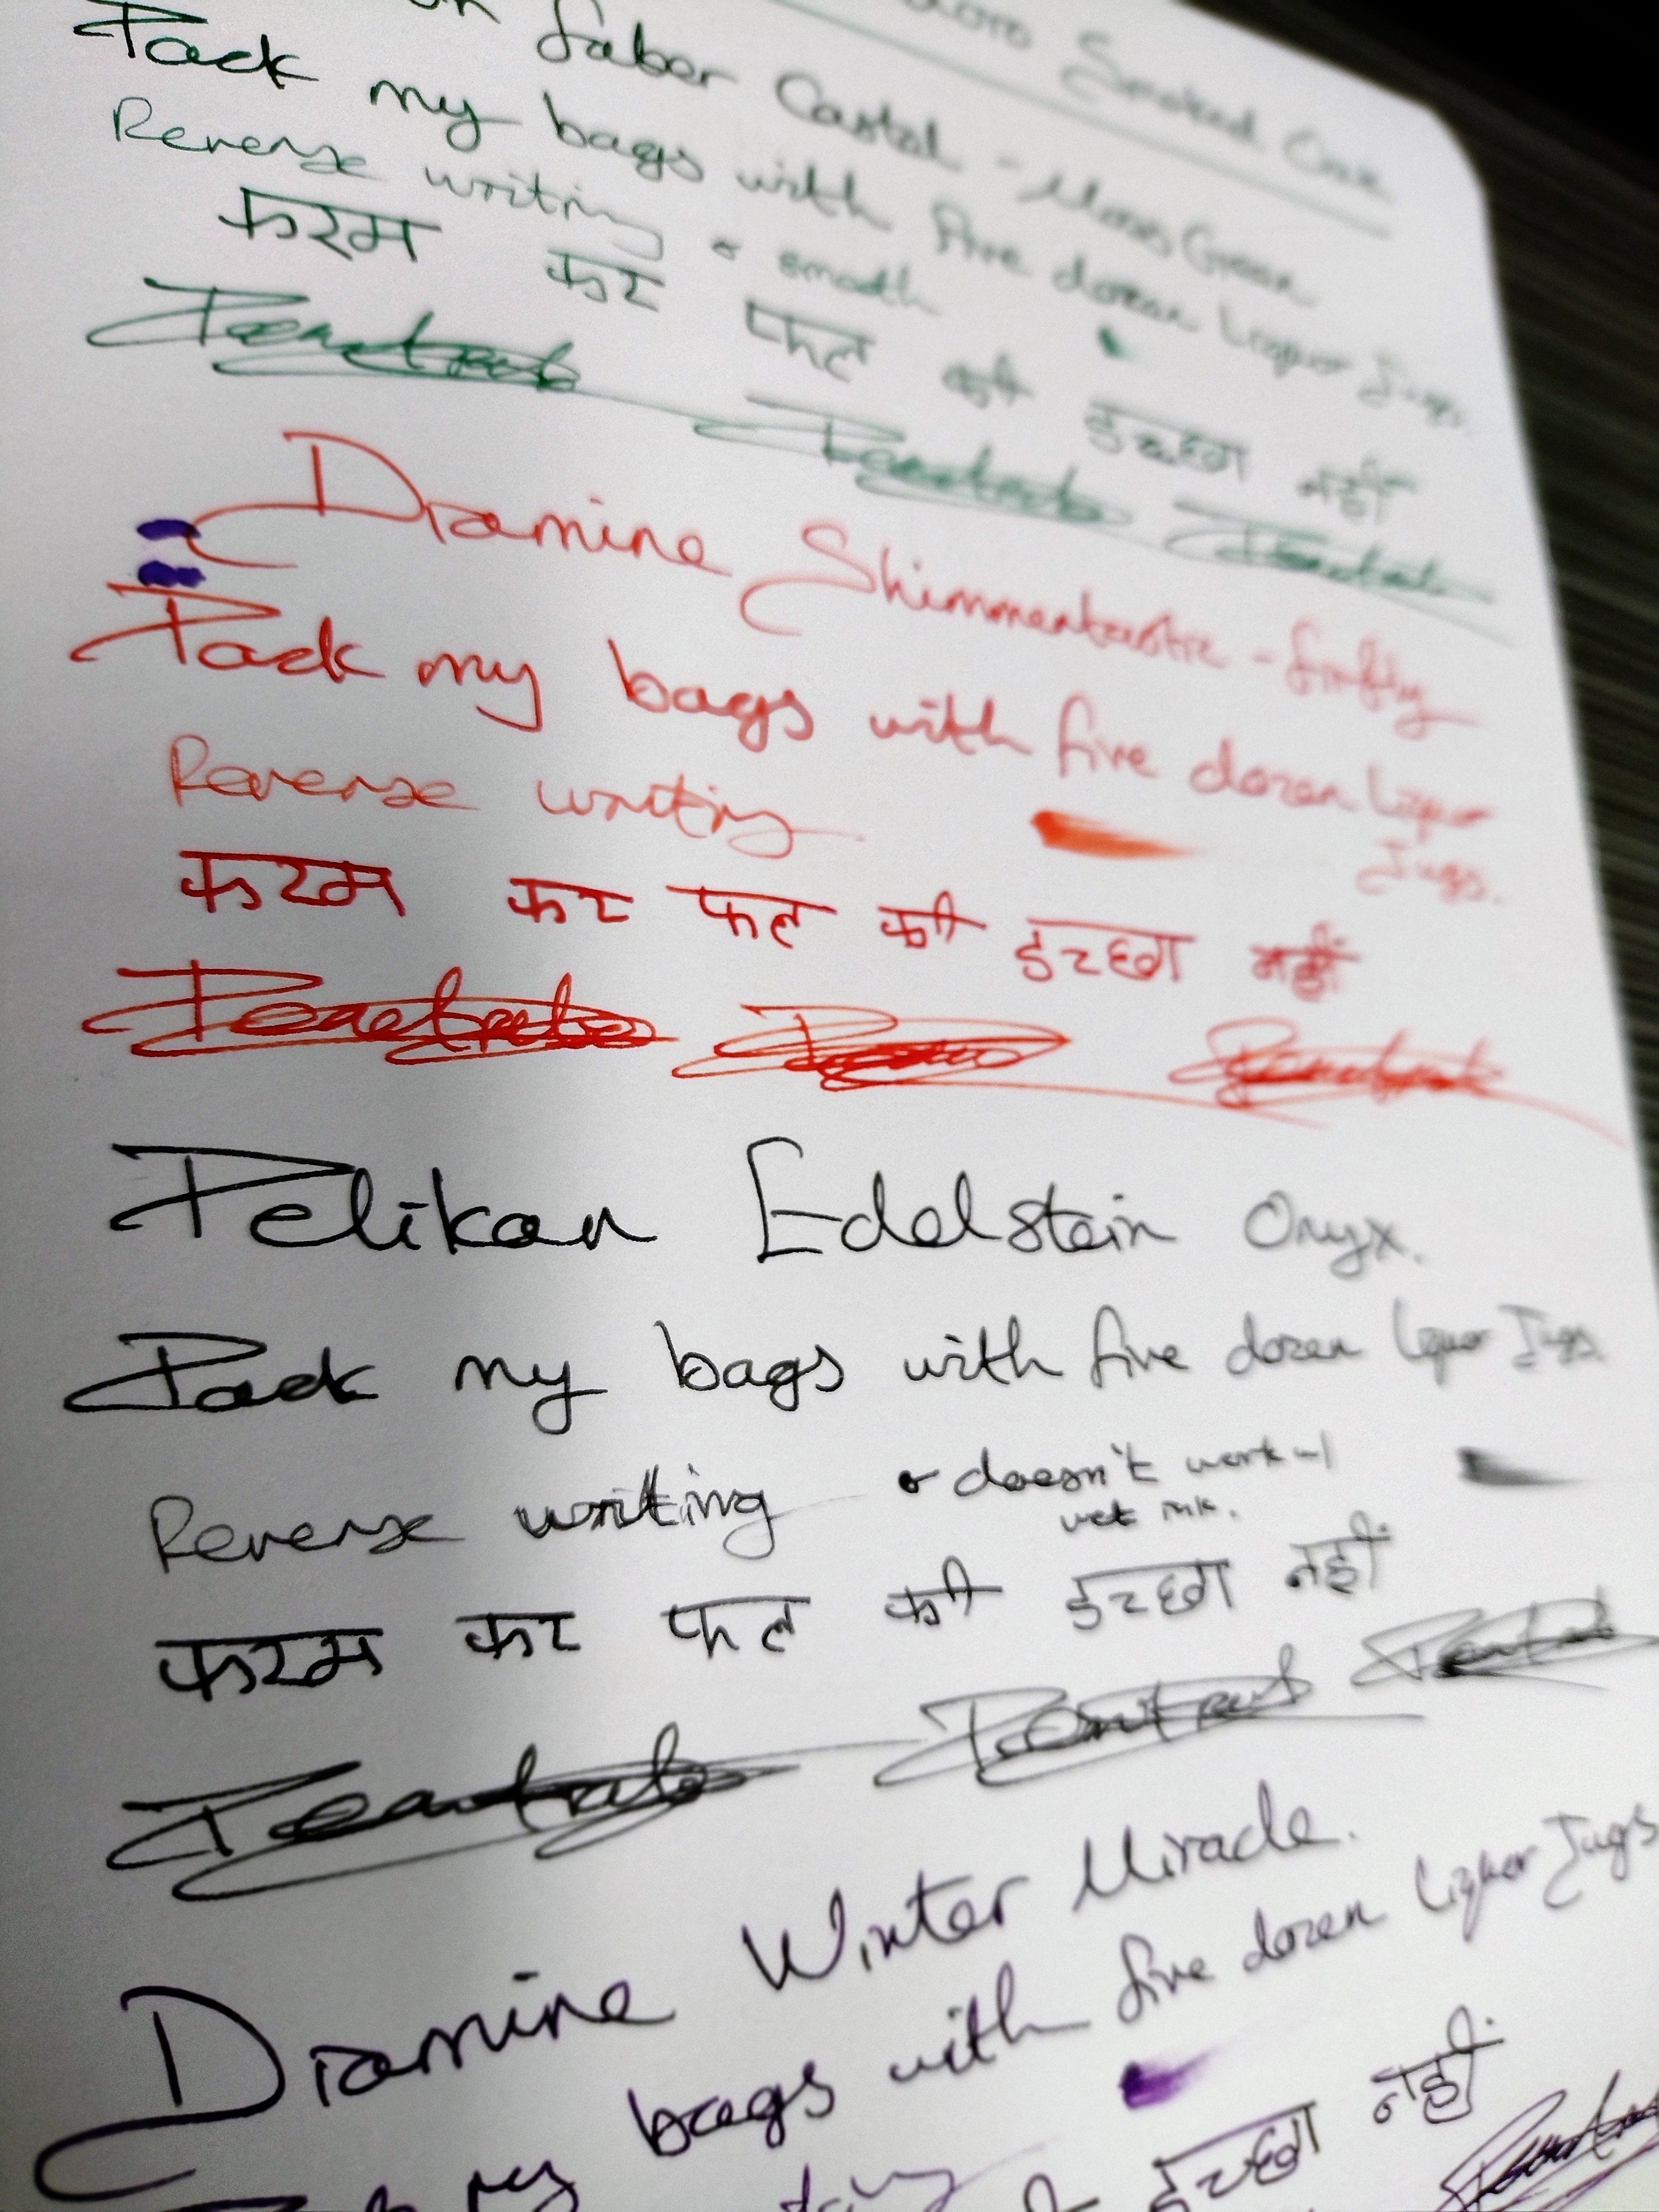 Smoked
Faber Castel - Moss Green
Pack my bags with five dozen Liquor Jugs.
Reverse writing smooth
करम कर फल की इच्छा नहीं
Diamine Shimmertastic - firefly
Pack my bags with five dozen Liquor
Jugs.
Reverse writing
करम कर फल की इच्छा नहीं
Pelikan Edelstein Onyx.
Pack my bags with five dozen Liquor Jugs.
Reverse writing doesn't work -
wet ink.
करम कर फल की इच्छा नहीं
Diamine Winter Miracle.
my bags with five dozen Liquor Jugs
इच्छा नहीं